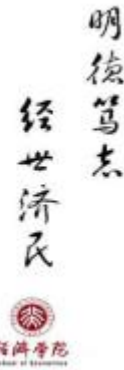 明德笃志
经世济民
经济学院
School of Economics